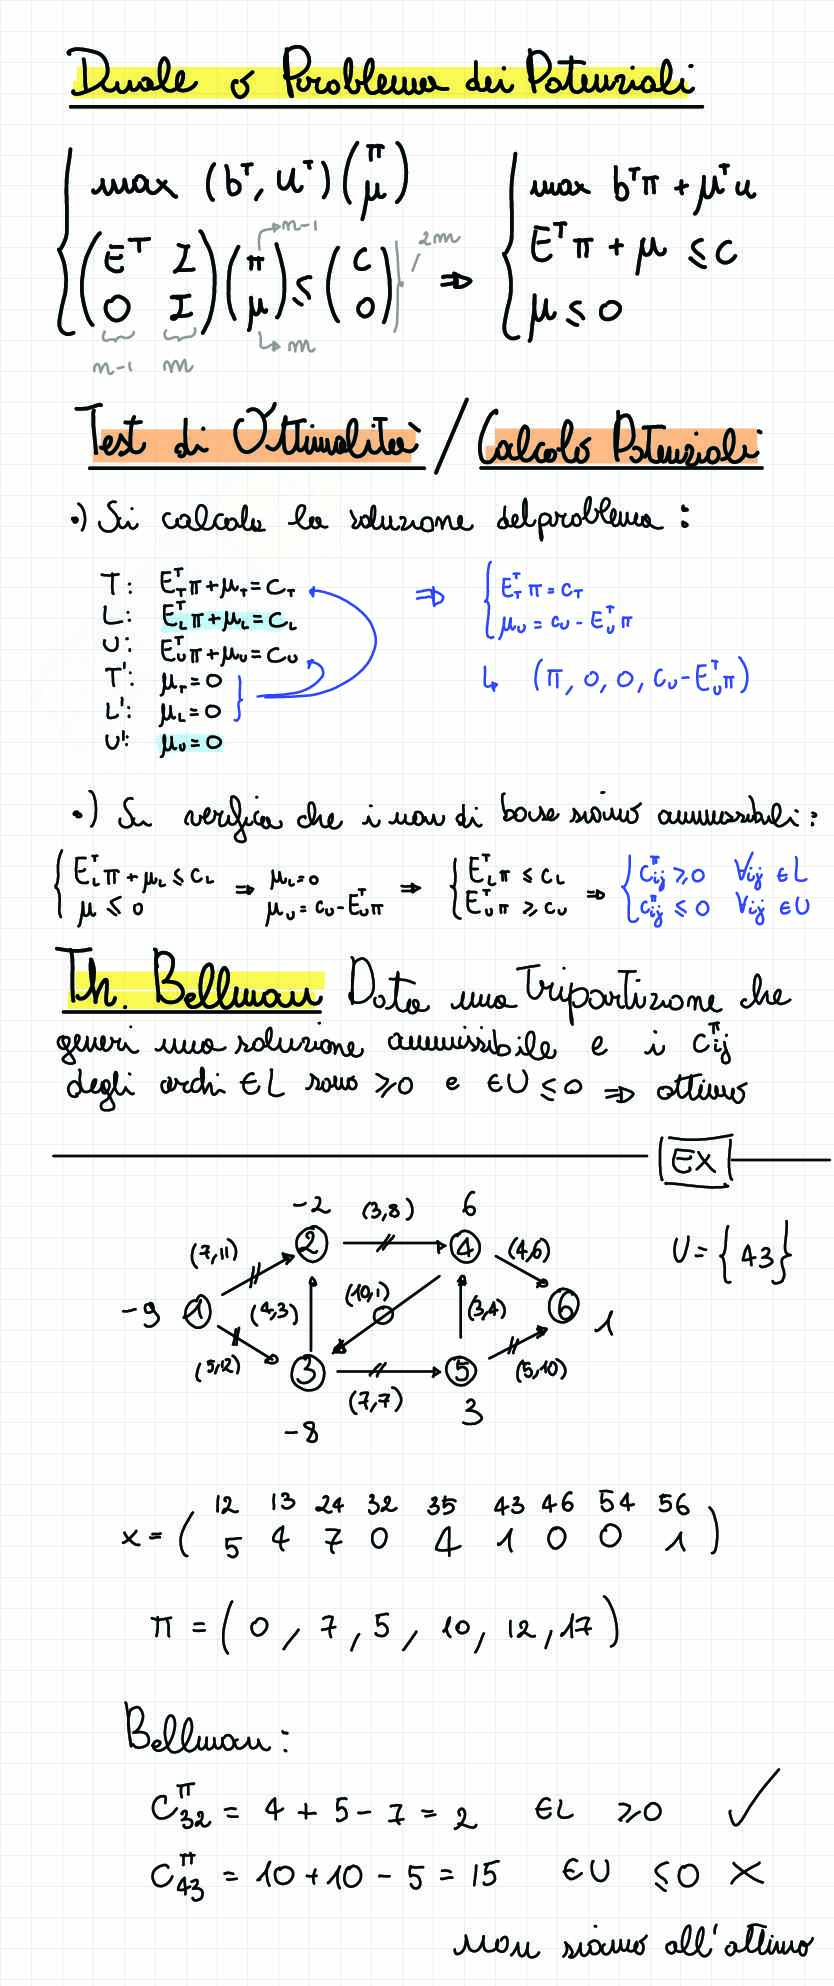 Duale o Problema dei Potenziali
max (bᵀ, uᵀ) (π μ) ⇒ max bᵀπ + μᵀu
(Eᵀ I 0 I) (π μ) ≤ (c 0) Eᵀπ + μ ≤ c
n-1 m n-1 m 2m μ ≤ 0
Test di Ottimalità / Calcolo Potenziali
•) Si calcola la soluzione del problema:
T: E_Tᵀ π + μ_T = c_T ⇒ E_Tᵀ π = c_T
L: E_Lᵀ π + μ_L = c_L μ_U = c_U - E_Uᵀ π
U: E_Uᵀ π + μ_U = c_U
T': μ_T = 0 ↳ (π, 0, 0, c_U - E_Uᵀπ)
L': μ_L = 0
U': μ_U = 0
•) Si verifica che i non di base siano ammissibili:
E_Lᵀ π + μ_L ≤ c_L ⇒ μ_L = 0 ⇒ E_Lᵀ π ≤ c_L ⇒ c_ij^π ≥ 0 ∀ij ∈ L
μ ≤ 0 μ_U = c_U - E_Uᵀπ E_Uᵀ π ≥ c_U c_ij^π ≤ 0 ∀ij ∈ U
Th. Bellman Data una Tripartizione che
generi una soluzione ammissibile e i c_ij^π
degli archi ∈ L sono ≥ 0 e ∈ U ≤ 0 ⇒ ottimo
EX
-2 (3,8) 6
(7,11) 2 4 (4,6) U = {43}
-9 1 (4,3) (10,1) (3,4) 6 1
(5,12) 3 5 (5,10)
(7,7)
-8 3
12 13 24 32 35 43 46 54 56
x = ( 5 4 7 0 4 1 0 0 1 )
π = ( 0, 7, 5, 10, 12, 17 )
Bellman:
C_32^π = 4 + 5 - 7 = 2 ∈ L ≥ 0 ✓
C_43^π = 10 + 10 - 5 = 15 ∈ U ≤ 0 ×
non siamo all'ottimo